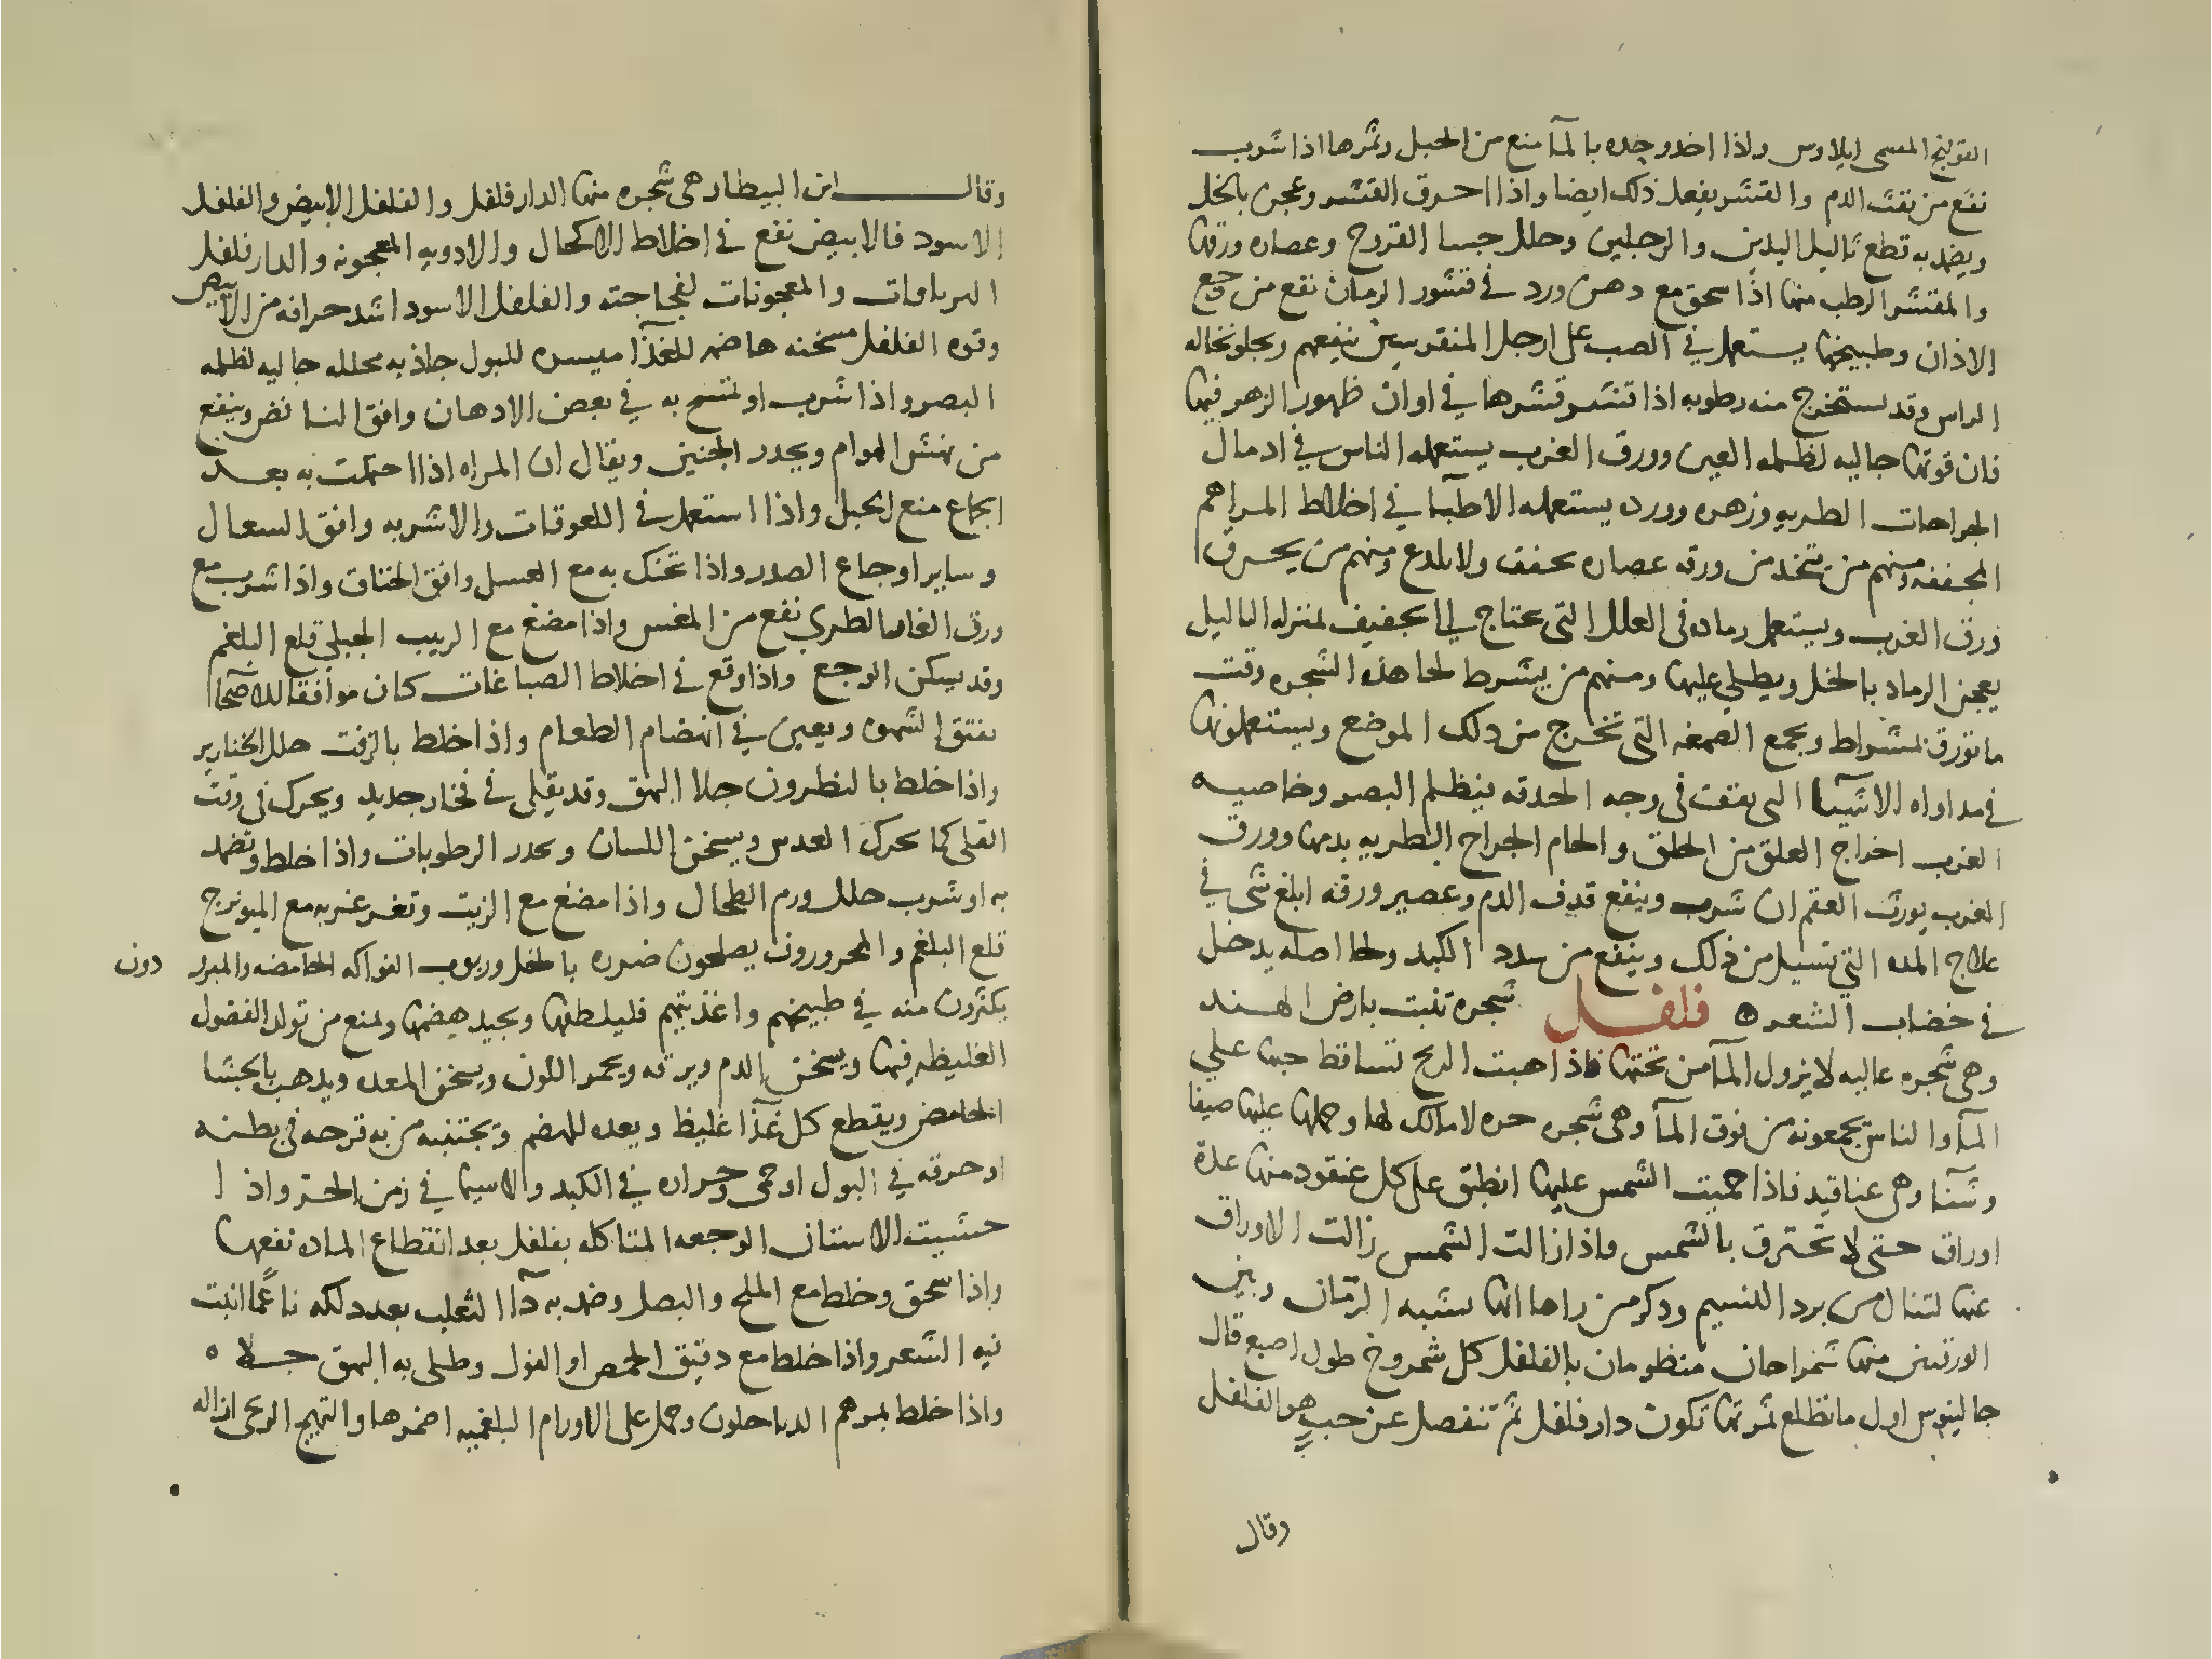 القولنج المسمى ايلاوس واذا اخد وحده بالمآ منع من الحبل وثمرها اذا شرب
نفع من نفث الدم والقشر يفعل ذلك ايضا واذا احرق القشر وعجن بالخل
ويضمد به قطع ثاليل اليدين والرجلين وحلل جسا القروح وعصاره ورقها
والمقشر الرطب منها اذا سحق مع دهن ورد في قشور الرمان نفع من وجع
الاذان وطبيخها يستعمل في الصب على ارجل المنقرسين ينفعهم ويجلو نخاله
الراس وقد يستخرج منه رطوبه اذا قشر قشرها في اوان ظهور الزهر فيها
فان قوتها جاليه لظلمه العين وورق الغرب يستعمله الناس في ادمال
الجراحات الطريه وزهره وورده يستعمله الاطبآ في اخلاط المراهم
المجففه ومنهم من يتخذ من ورقه عصاره تجفف ولا تلدع ومنهم من يحرق
ورق الغرب ويستعمل رماده فى العلل التى تحتاج الى تجفيف بمنزله الثاليل
يعجن الرماد بالخل ويطلي عليها ومنهم من يشرط لحا هذه الشجره وقت
ما تورق بمشراط ويجمع الصمغه التى تخرج من دلك الموضع ويستعملونها
في مداواه الاشيآ التى تقف فى وجه الحدقه فيظلم البصر وخاصيه
الغرب اخراج العلق من الحلق والحام الجراح الطريه بدمها وورق
الغرب يورث العقم ان شرب وينفع قدف الدم وعصير ورقه ابلغ شى في
علاج المده التي تسيل من ذلك وينفع من سدد الكبد ولحا اصله يدخل
في خضاب الشعر ه فلفل شجره تنبت بارض الهند
وهى شجره عاليه لا يزول المآ من تحتها فاذا هبت الريح تساقط حبها علي
المآ والناس يجمعونه من فوق المآ وهى شجره حره لا مالك لها وحملها عليها صيفا
وشتآ وهى عناقيد فاذا حميت الشمس عليها انطبق على كل عنقود منها عدة
اوراق حتى لا تحترق بالشمس فاذا زالت الشمس زالت الاوراق
عنها لتنال من برد النسيم وذكر من راها انها تشبه الرمان وبين
الورقتين منها شمراخان منظومان بالفلفل كل شمروخ طول اصبع قال
جالينوس اول ما تطلع ثمرتها تكون دار فلفل ثم تنفصل عن حب هو الفلفل
وقال
وقال ابن البيطار هى شجره منها الدار فلفل والفلفل الابيض والفلفل
الاسود فالابيض نفع في اخلاط الاكحال والادويه المعجونه والدار فلفل
الترياقات والمعجونات لفجاجته والفلفل الاسود اشد حرافه من الابيض
وقوه الفلفل مسخنه هاضمه للغذآ ميسره للبول جاذبه محلله جاليه لظلمه
البصر واذا شرب او تمسح به في بعض الادهان وافق النافض وينفع
من نهش الهوام ويحدر الجنين ويقال ان المراه اذا احتملت به بعد
الجماع منع الحبل واذا استعمل في اللعوقات والاشربه وافق السعال
وساير اوجاع الصدر واذا تحنك به مع العسل وافق الخناق واذا شرب مع
ورق الغار الطري نفع من المغس واذا مضغ مع الزبيب الجبلي قلع البلغم
وقد يسكن الوجع واذا وقع في اخلاط الصباغات كان موافقا للاصحا
يفتق الشهوه ويعين في انهضام الطعام واذا خلط بالزفت حلل الخنازير
واذا خلط بالنطرون جلا البهق وقد يقلى في فخار جديد ويحرك فى وقت
القلى كما يحرك العدس ويسخن اللسان ويحدر الرطوبات واذا خلط وتضمد
به او شرب حلل ورم الطحال واذا مضغ مع الزيت وتغرغر به مع الميوبزج
قلع البلغم والمحرورون يصلحون ضرره بالخل وربوب الفواكه الحامضه والمبرد دون
يكثرون منه في طبيخهم واغذيتهم فيلطفها ويجيد هضمها ويمنع من تولد الفضول
الغليظه فيها ويسخن الدم ويرقه ويحمر اللون ويسخن المعده ويدهب بالجشا
الحامض ويقطع كل غذآ غليظ ويعده للهضم ويجتنبه من به قرحه في بطنه
او حرقه في البول او حمى وحراره في الكبد ولاسيما في زمن الحر واذا
حشيت الاسنان الوجعه المتاكله بفلفل بعد انقطاع الماده نفعها
واذا سحق وخلط مع الملح والبصل وضمد به دآ الثعلب بعد دلكه ناعمًا انبت
فيه الشعر واذا خلط مع دقيق الحمص او الفول وطلى به البهق جلاه
واذا خلط بمرهم الدياخلون وحمل على الاورام البلغميه اضمرها والتهيج الريحى ازاله